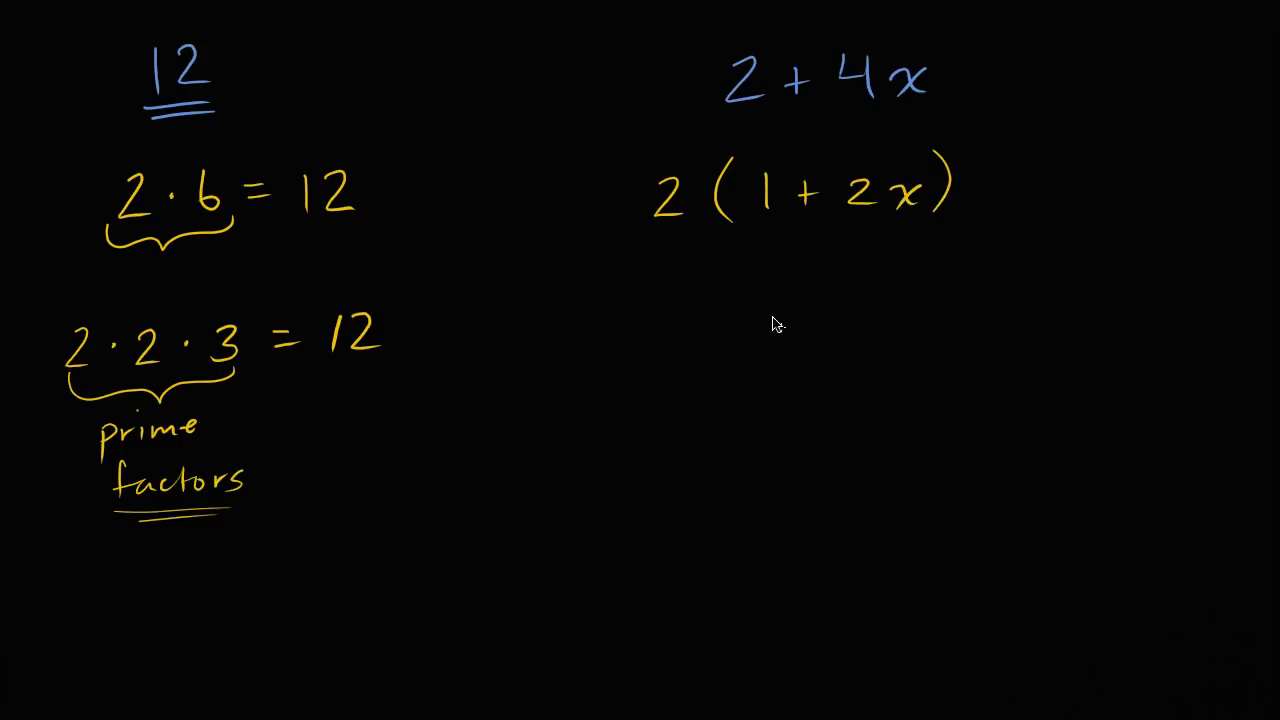 12
2 · 6 = 12
2 · 2 · 3 = 12
prime
factors
2 + 4x
2 ( 1 + 2x )